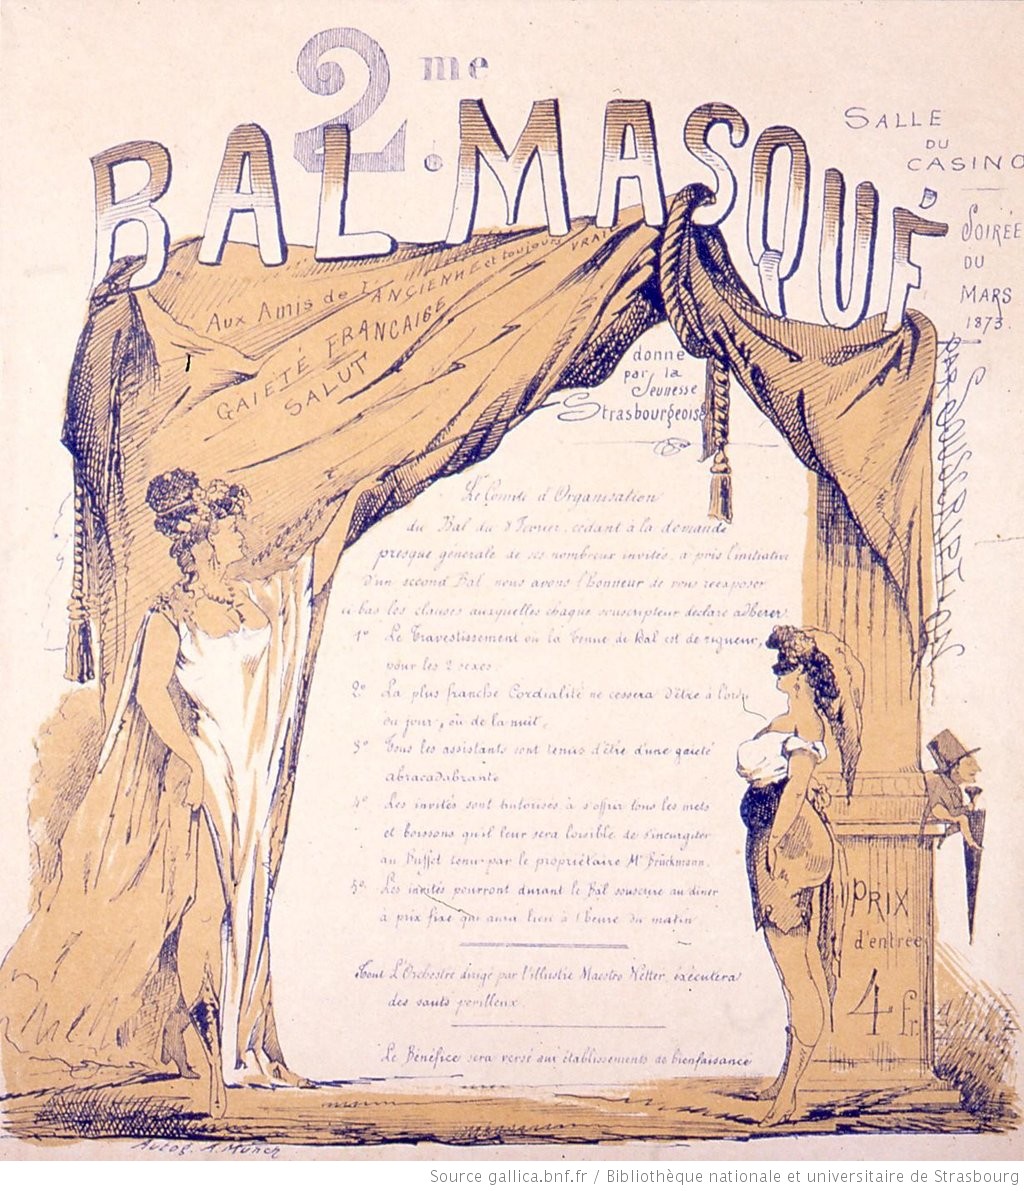 2me.
BAL MASQUÉ
SALLE
DU
CASINO
SOIRÉE
DU
MARS
1873.
PAR SOUSCRIPTION
Aux Amis de l'ANCIENNE et toujours VRAIE
GAIETÉ FRANCAISE
SALUT
donné
par la
Jeunesse
Strasbourgeoise
Le Comité d'Organisation
du Bal du 8 Fevrier, cédant à la demande
presque générale de ses nombreux invités, a pris l'initiative
d'un second Bal nous avons l'honneur de vous réexposer
ci-bas les clauses auxquelles chaque souscripteur déclare adhérer.
1º Le Travestissement ou la Tenue de Bal est de rigueur,
pour les 2 sexes.
2º La plus franche Cordialité ne cessera d'être à l'ordre
du jour, ou de la nuit.
3º Tous les assistants sont tenus d'être d'une gaieté
abracadabrante
4º Les invités sont autorisés à s'offrir tous les mets
et boissons qu'il leur sera loisible de s'incurgiter
au Buffet tenu par le propriétaire Mr Brückmann.
5º Les invités pourront durant le Bal souscrire au diner
à prix fixe qui aura lieu à 1 heure du matin
Tout L'Orchestre dirigé par l'illustre Maestro Wetter, exécutera
des sauts perilleux.
Le Bénéfice sera versé aux établissements de bienfaisance
PRIX
d'entrée
4 fr.
Autog. A. Münch
Source gallica.bnf.fr / Bibliothèque nationale et universitaire de Strasbourg